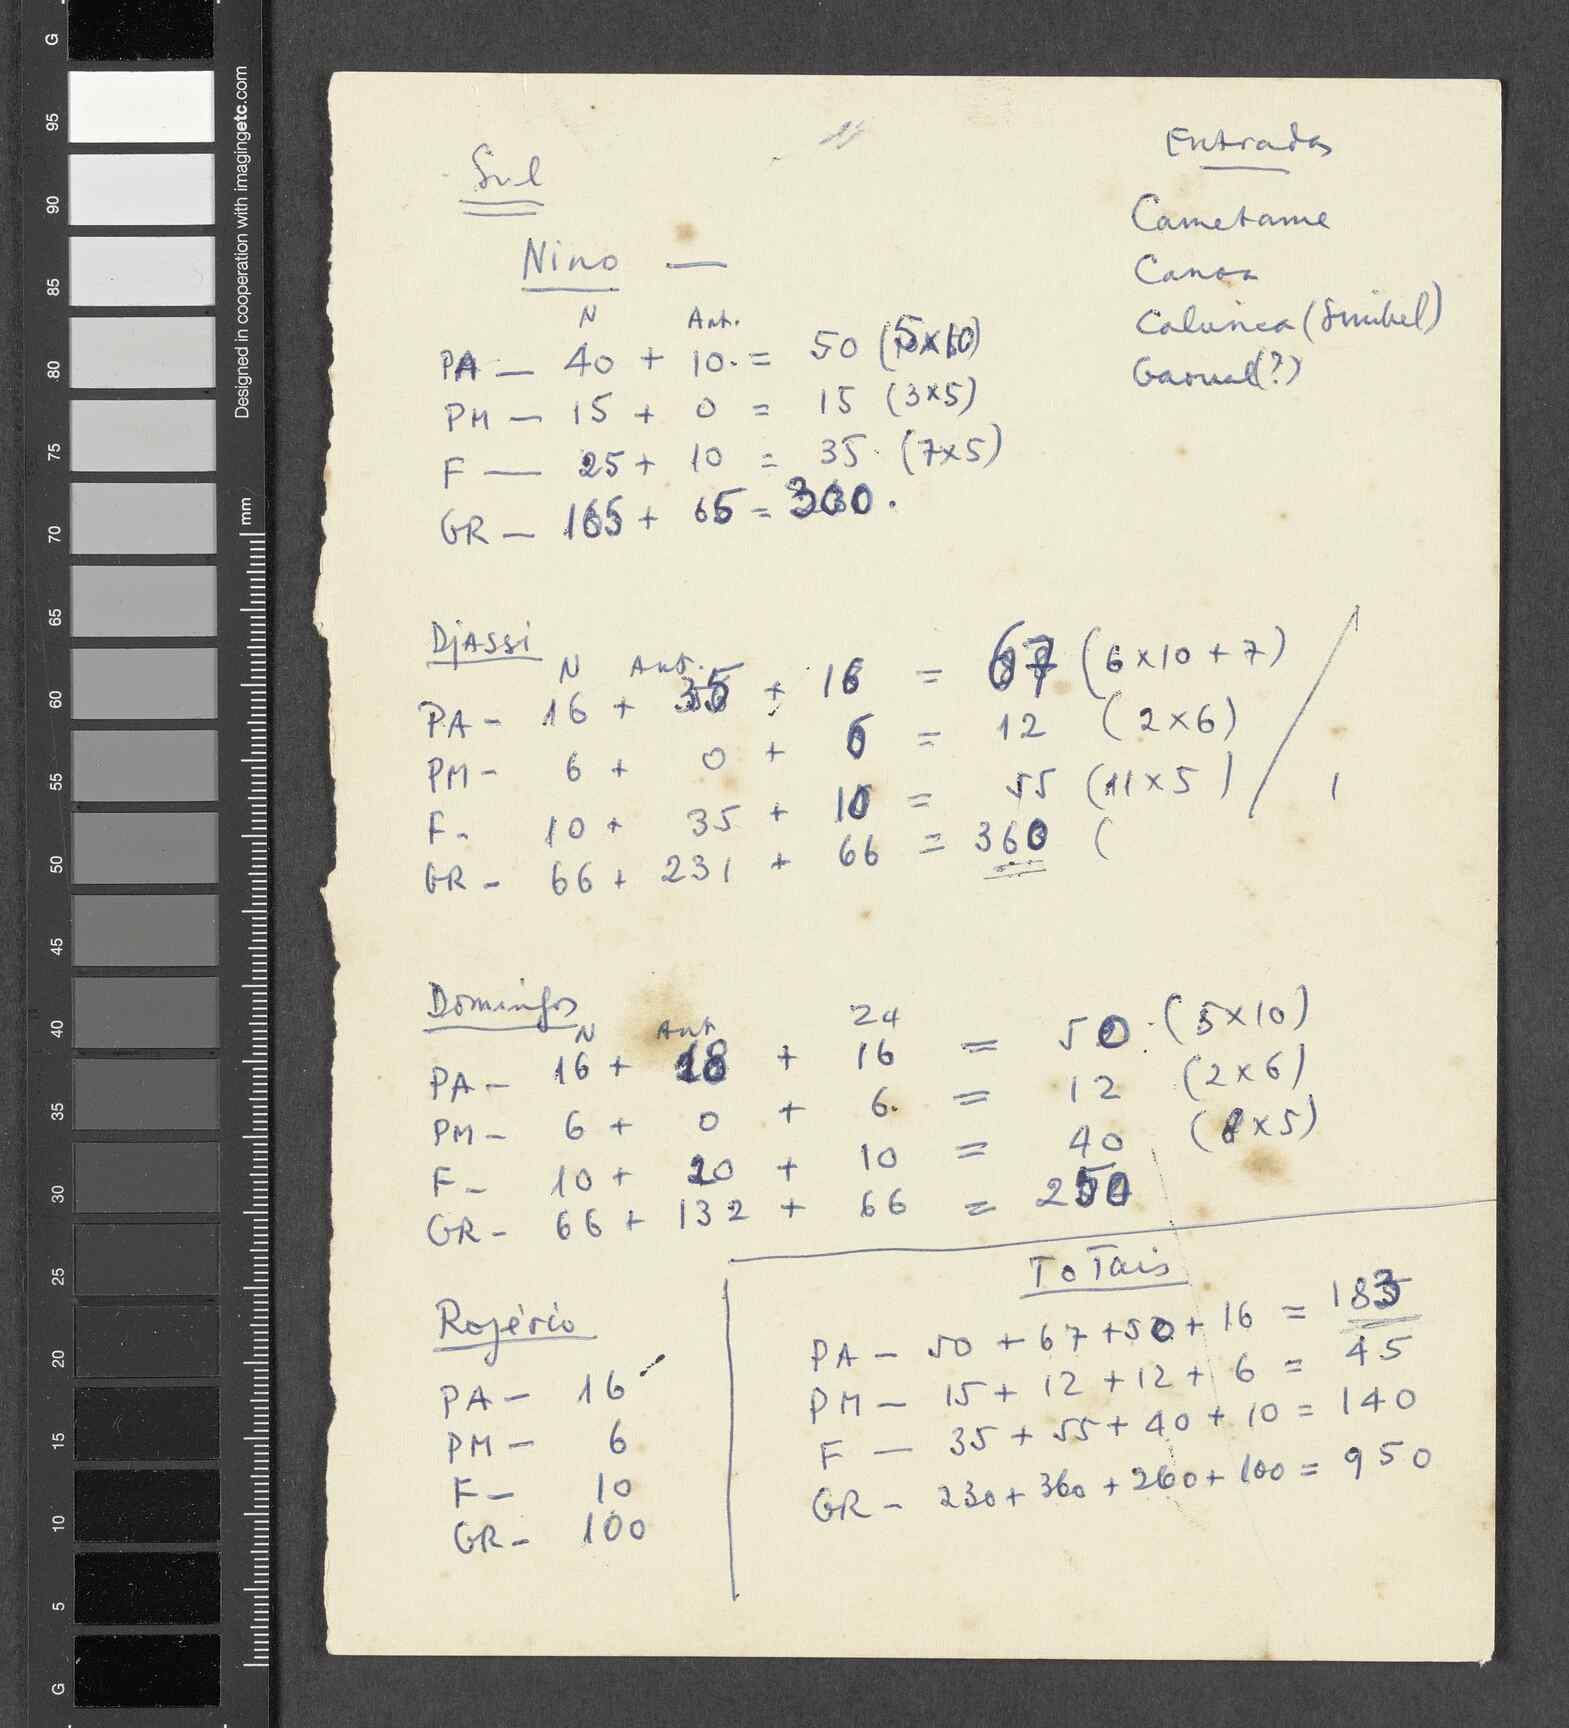 Sul
Nino —
N Ant.
PA — 40 + 10. = 50 (5x10)
PM — 15 + 0 = 15 (3x5)
F — 25 + 10 = 35. (7x5)
GR — 165 + 65 = 300.
Entradas
Cametame
Canoa
(?)
Djassi
N Ant.
PA - 16 + 35 + 16 = 67 (6 x 10 + 7)
PM - 6 + 0 + 6 = 12 (2 x 6)
F - 10 + 35 + 10 = 55 (11 x 5)
GR - 66 + 231 + 66 = 360 (
Domingos
N Ant 24
PA - 16 + 18 + 16 = 50 (5x10)
PM - 6 + 0 + 6. = 12 (2x6)
F - 10 + 20 + 10 = 40 (8x5)
GR - 66 + 132 + 66 = 250
Rogério
PA - 16
PM - 6
F - 10
GR - 100
ToTais
PA - 50 + 67 + 50 + 16 = 183
PM - 15 + 12 + 12 + 6 = 45
F - 35 + 55 + 40 + 10 = 140
GR - 230 + 360 + 260 + 100 = 950
Designed in cooperation with imagingetc.com
mm
G
95
90
85
80
75
70
65
60
55
50
45
40
35
30
25
20
15
10
5
G